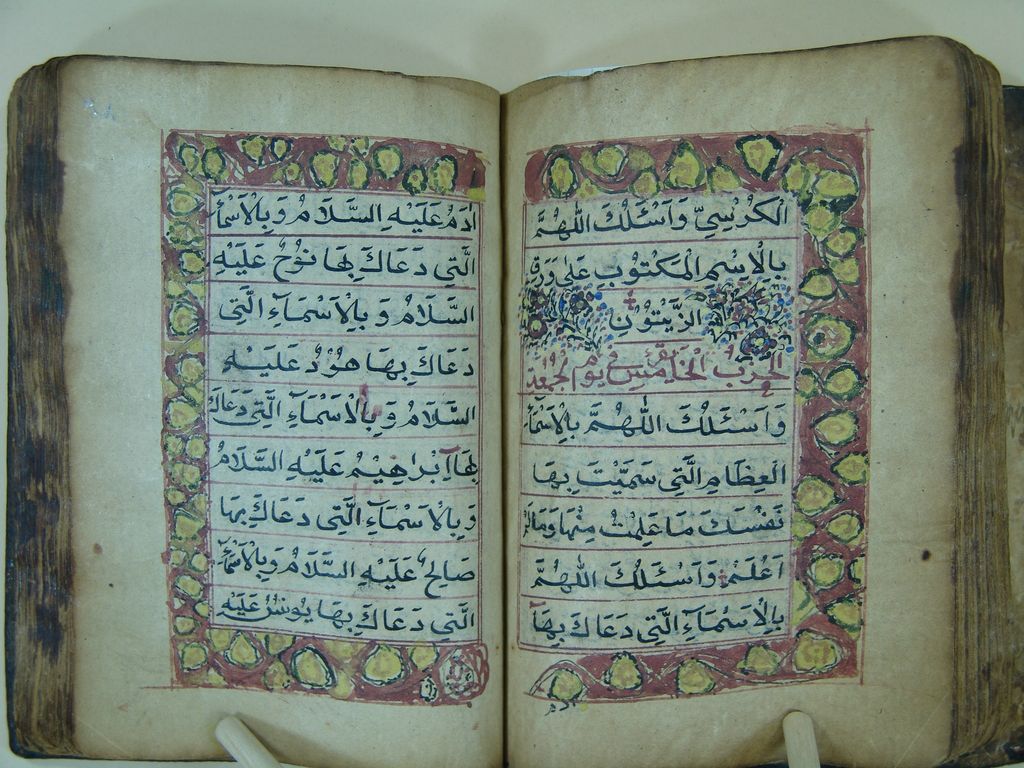 الْكُرْسِيِّ وَاَسْئَلُكَ اللّٰهُمَّ
بِالْاِسْمِ الْمَكْتُوبِ عَلٰى وَرَقِ
الزَّيْتُونِ
الحزب الخامس في يوم الجمعة
وَاَسْئَلُكَ اللّٰهُمَّ بِالْاَسْمَآءِ
الْعِظَامِ الَّتِي سَمَّيْتَ بِهَا
نَفْسَكَ مَا عَلِمْتُ مِنْهَا وَمَا لَمْ
اَعْلَمْ وَاَسْئَلُكَ اللّٰهُمَّ
بِالْاَسْمَآءِ الَّتِي دَعَاكَ بِهَا
اٰدَمُ عَلَيْهِ السَّلَامُ وَبِالْاَسْمَآءِ
الَّتِي دَعَاكَ بِهَا نُوحٌ عَلَيْهِ
السَّلَامُ وَبِالْاَسْمَآءِ الَّتِي
دَعَاكَ بِهَا هُوْدٌ عَلَيْهِ
السَّلَامُ وَبِالْاَسْمَآءِ الَّتِي دَعَاكَ
بِهَا اِبْرَاهِيْمُ عَلَيْهِ السَّلَامُ
وَبِالْاَسْمَآءِ الَّتِي دَعَاكَ بِهَا
صَالِحٌ عَلَيْهِ السَّلَامُ وَبِالْاَسْمَآءِ
الَّتِي دَعَاكَ بِهَا يُونُسُ عَلَيْهِ